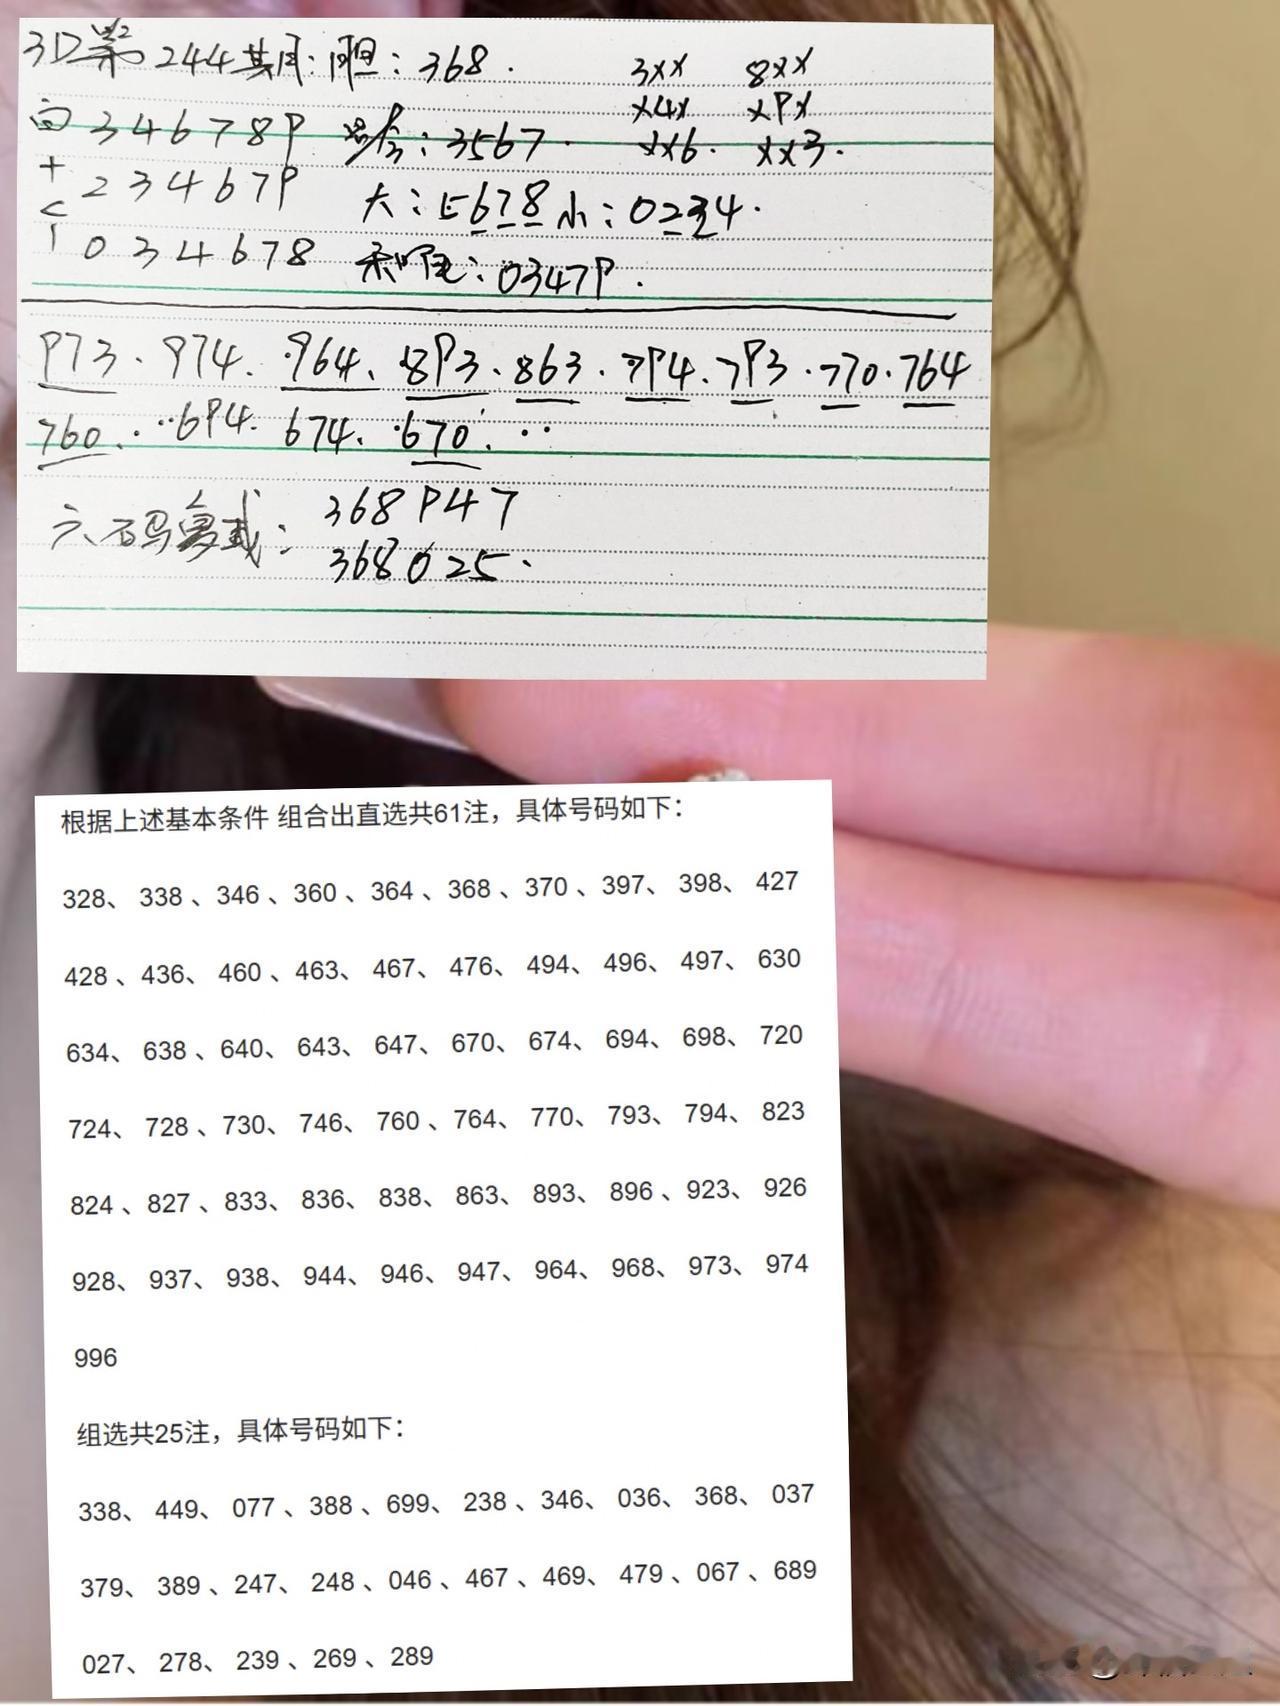 3D第244其月：胆：368. 3xx 8xx
x4x xPx
百 34678P 跨：3567. xx6. xx3.
+ 23467P 大：5678 小：0234.
个 034678 和尾：0347P.
P73. 974. 964、8P3、863. 7P4、7P3.770.764
760. 6P4. 674、670.
六码复式：368P47
368025.
根据上述基本条件 组合出直选共61注，具体号码如下：
328、 338 、346 、360 、364 、368 、370 、397、 398、 427
428 、436、 460 、463、 467、 476、 494、 496、 497、 630
634、 638 、640、 643、 647、 670、 674、 694、 698、 720
724、 728 、730、 746、 760 、764、 770、 793、 794、 823
824 、827 、833、 836、 838、 863、 893、 896 、923、 926
928、 937、 938、 944、 946、 947、 964、 968、 973、 974
996
组选共25注，具体号码如下：
338、 449、 077 、388 、699、 238 、346、 036、 368、 037
379、 389 、247、 248 、046 、467 、469、 479 、067 、689
027、 278、 239 、269 、289